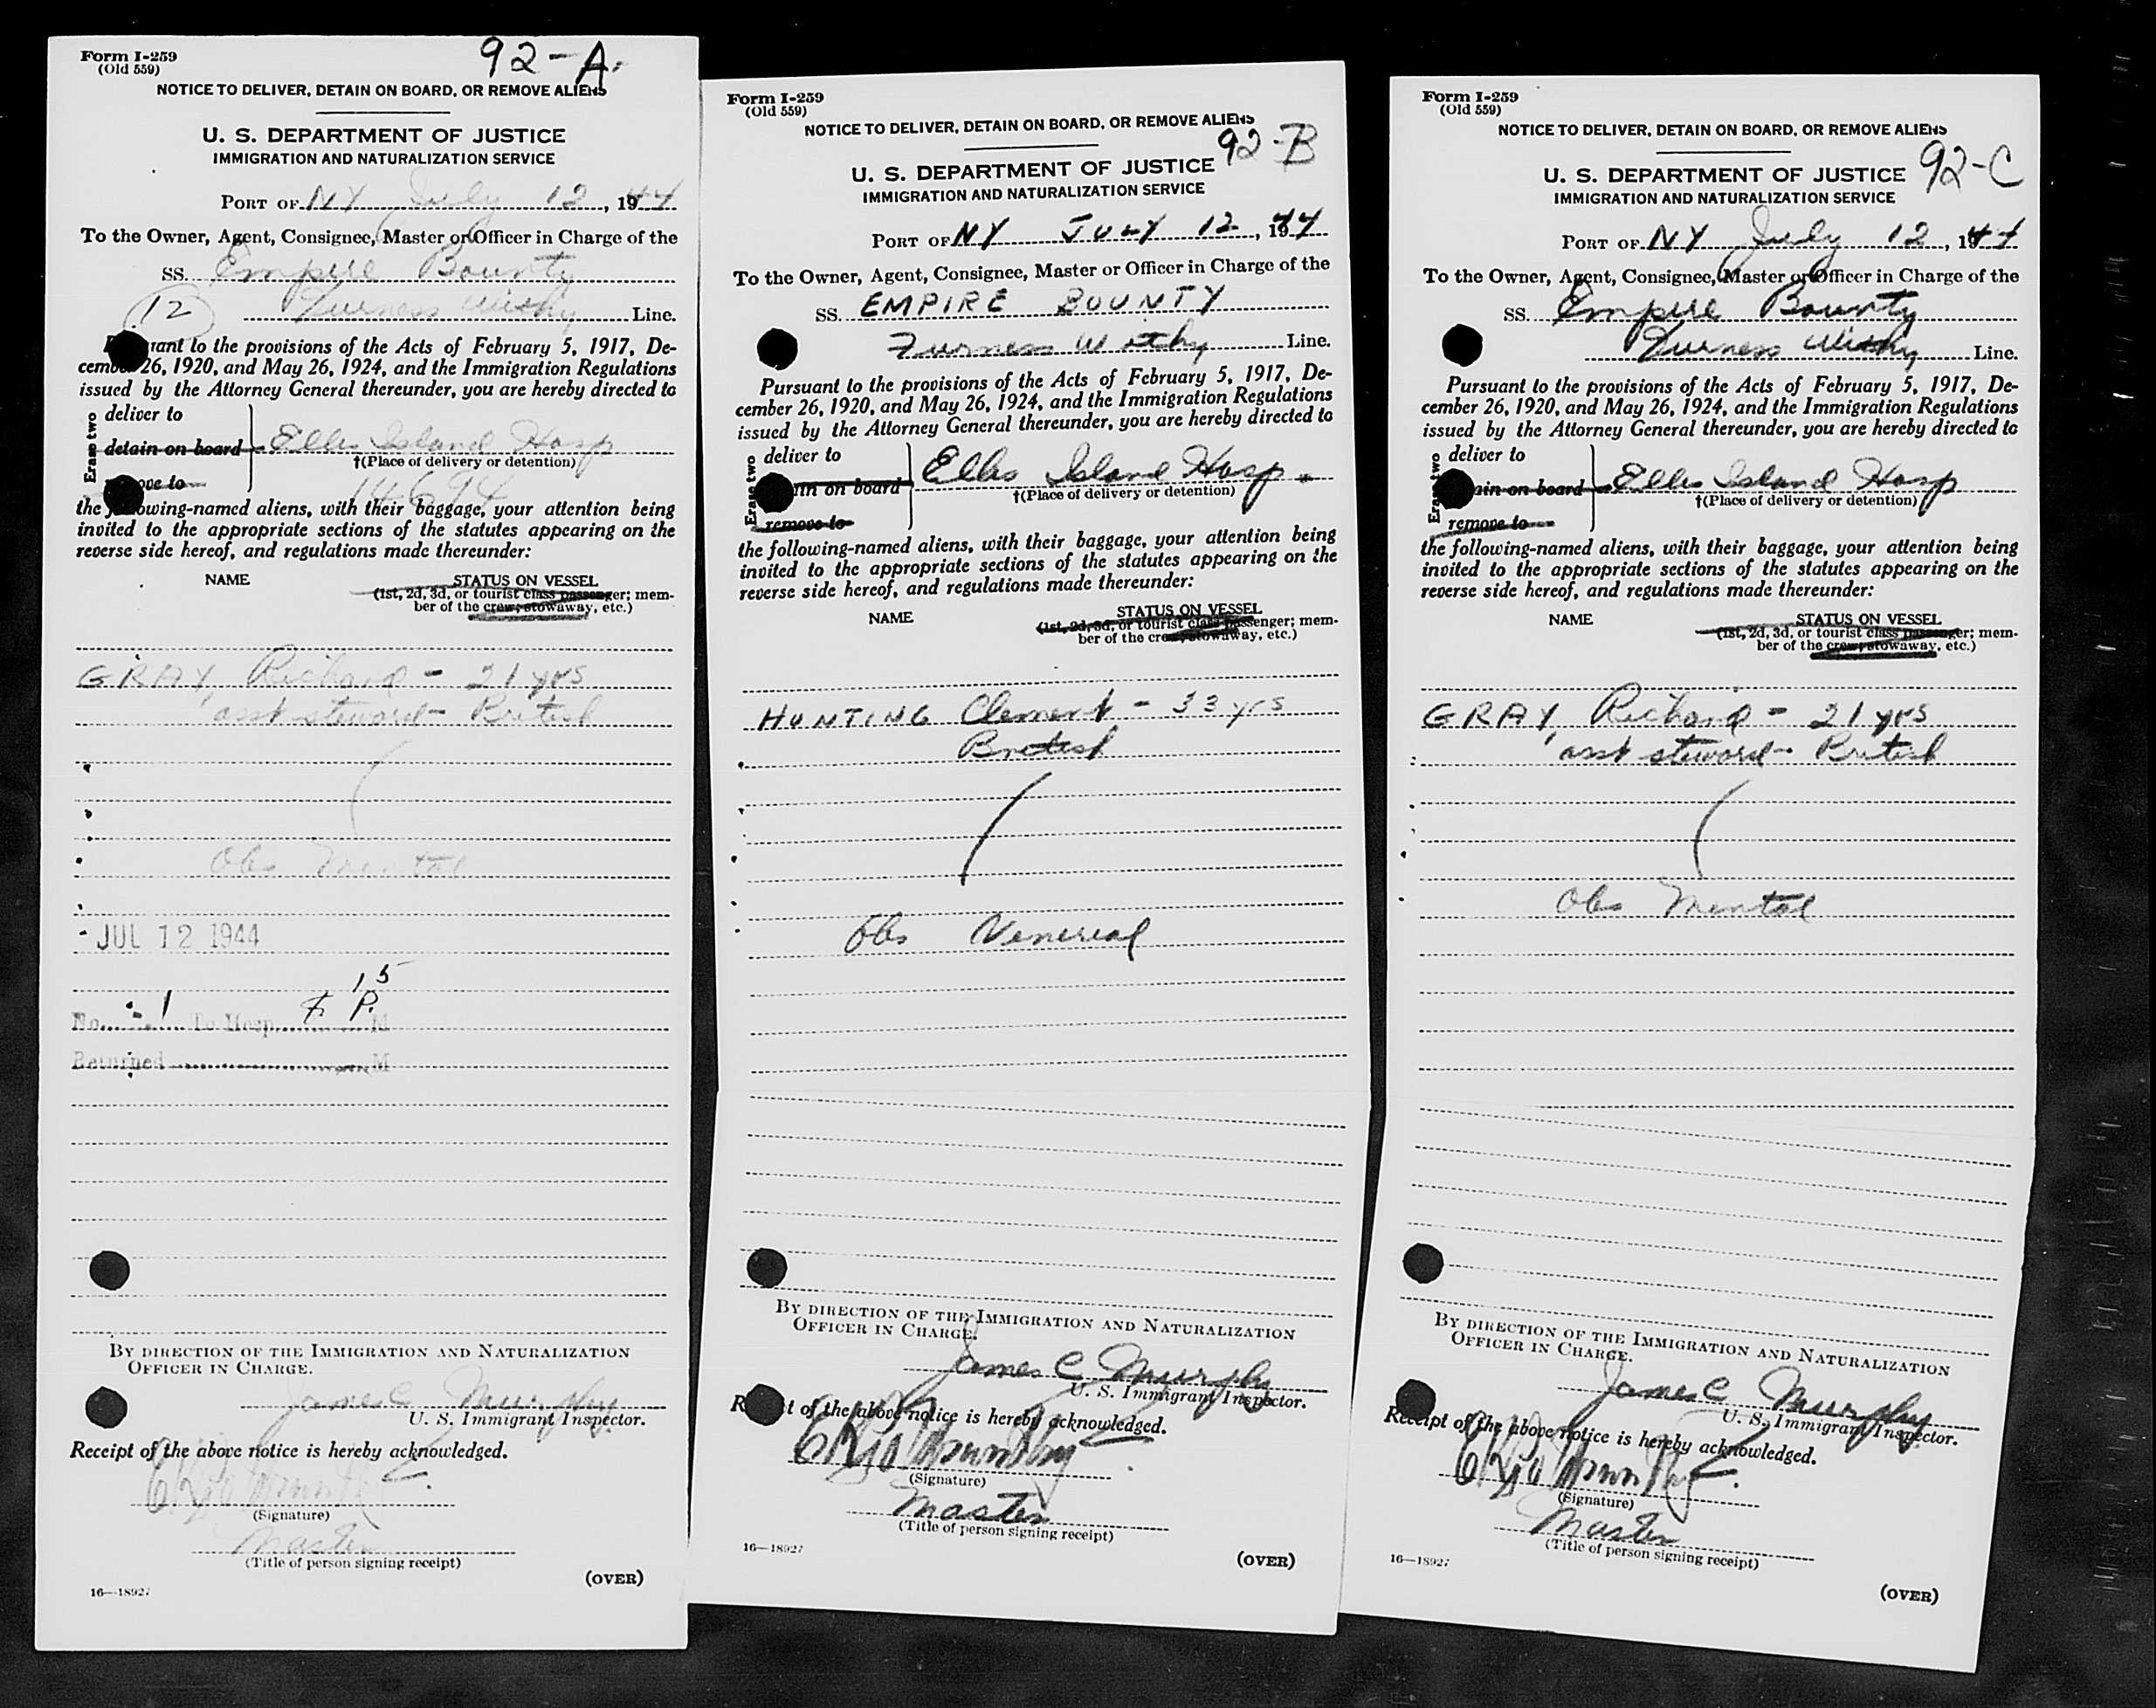 Form I-259
(Old 559)
92-A.
NOTICE TO DELIVER, DETAIN ON BOARD, OR REMOVE ALIENS
U. S. DEPARTMENT OF JUSTICE
IMMIGRATION AND NATURALIZATION SERVICE
PORT OF NY July 12, 1944
To the Owner, Agent, Consignee, Master or Officer in Charge of the
SS. Empire Bounty
12 Furness Withy Line.
rant to the provisions of the Acts of February 5, 1917, De-
cember 26, 1920, and May 26, 1924, and the Immigration Regulations
issued by the Attorney General thereunder, you are hereby directed to
Erase two
deliver to
detain on board Ellis Island Hosp
†(Place of delivery or detention)
ove to 14694
the following-named aliens, with their baggage, your attention being
invited to the appropriate sections of the statutes appearing on the
reverse side hereof, and regulations made thereunder:
NAME STATUS ON VESSEL
(1st, 2d, 3d, or tourist class passenger; mem-
ber of the crew; stowaway, etc.)
GRAY, Richard - 21 yrs
asst steward - British
Obs Mental
JUL 12 1944
15
No. 1 To Hosp P. M
Returned M
BY DIRECTION OF THE IMMIGRATION AND NATURALIZATION
OFFICER IN CHARGE.
James C Murphy
U. S. Immigrant Inspector.
Receipt of the above notice is hereby acknowledged.
(Signature)
Master
(Title of person signing receipt)
(OVER)
16—18927
Form I-259
(Old 559)
NOTICE TO DELIVER, DETAIN ON BOARD, OR REMOVE ALIENS
92-B
U. S. DEPARTMENT OF JUSTICE
IMMIGRATION AND NATURALIZATION SERVICE
PORT OF NY JULY 12, 1944
To the Owner, Agent, Consignee, Master or Officer in Charge of the
SS. EMPIRE BOUNTY
Furness Withy Line.
Pursuant to the provisions of the Acts of February 5, 1917, De-
cember 26, 1920, and May 26, 1924, and the Immigration Regulations
issued by the Attorney General thereunder, you are hereby directed to
Erase two
deliver to
in on board Ellis Island Hosp.
†(Place of delivery or detention)
remove to
the following-named aliens, with their baggage, your attention being
invited to the appropriate sections of the statutes appearing on the
reverse side hereof, and regulations made thereunder:
NAME STATUS ON VESSEL
(1st, 2d, 3d, or tourist class passenger; mem-
ber of the crew; stowaway, etc.)
HUNTING Clement - 33 yrs
British
Obs Venereal
BY DIRECTION OF THE IMMIGRATION AND NATURALIZATION
OFFICER IN CHARGE.
James C Murphy
U. S. Immigrant Inspector.
R t of the above notice is hereby acknowledged.
(Signature)
Master
(Title of person signing receipt)
16—18927
(OVER)
Form I-259
(Old 559)
NOTICE TO DELIVER, DETAIN ON BOARD, OR REMOVE ALIENS
92-C
U. S. DEPARTMENT OF JUSTICE
IMMIGRATION AND NATURALIZATION SERVICE
PORT OF NY July 12, 1944
To the Owner, Agent, Consignee, Master or Officer in Charge of the
SS. Empire Bounty
Furness Withy Line.
Pursuant to the provisions of the Acts of February 5, 1917, De-
cember 26, 1920, and May 26, 1924, and the Immigration Regulations
issued by the Attorney General thereunder, you are hereby directed to
Erase two
deliver to
ain on board Ellis Island Hosp
†(Place of delivery or detention)
remove to
the following-named aliens, with their baggage, your attention being
invited to the appropriate sections of the statutes appearing on the
reverse side hereof, and regulations made thereunder:
NAME STATUS ON VESSEL
(1st, 2d, 3d, or tourist class passenger; mem-
ber of the crew; stowaway, etc.)
GRAY, Richard - 21 yrs
asst steward - British
Obs Mental
BY DIRECTION OF THE IMMIGRATION AND NATURALIZATION
OFFICER IN CHARGE.
James C Murphy
U. S. Immigrant Inspector.
Receipt of the above notice is hereby acknowledged.
(Signature)
Master
(Title of person signing receipt)
16—18927
(OVER)